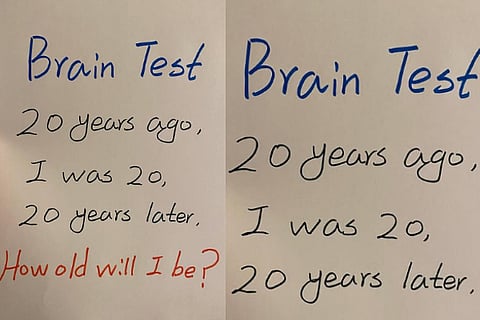 Brain Test
20 years ago,
I was 20,
20 years later.
How old will I be?
Brain Test
20 years ago,
I was 20,
20 years later.